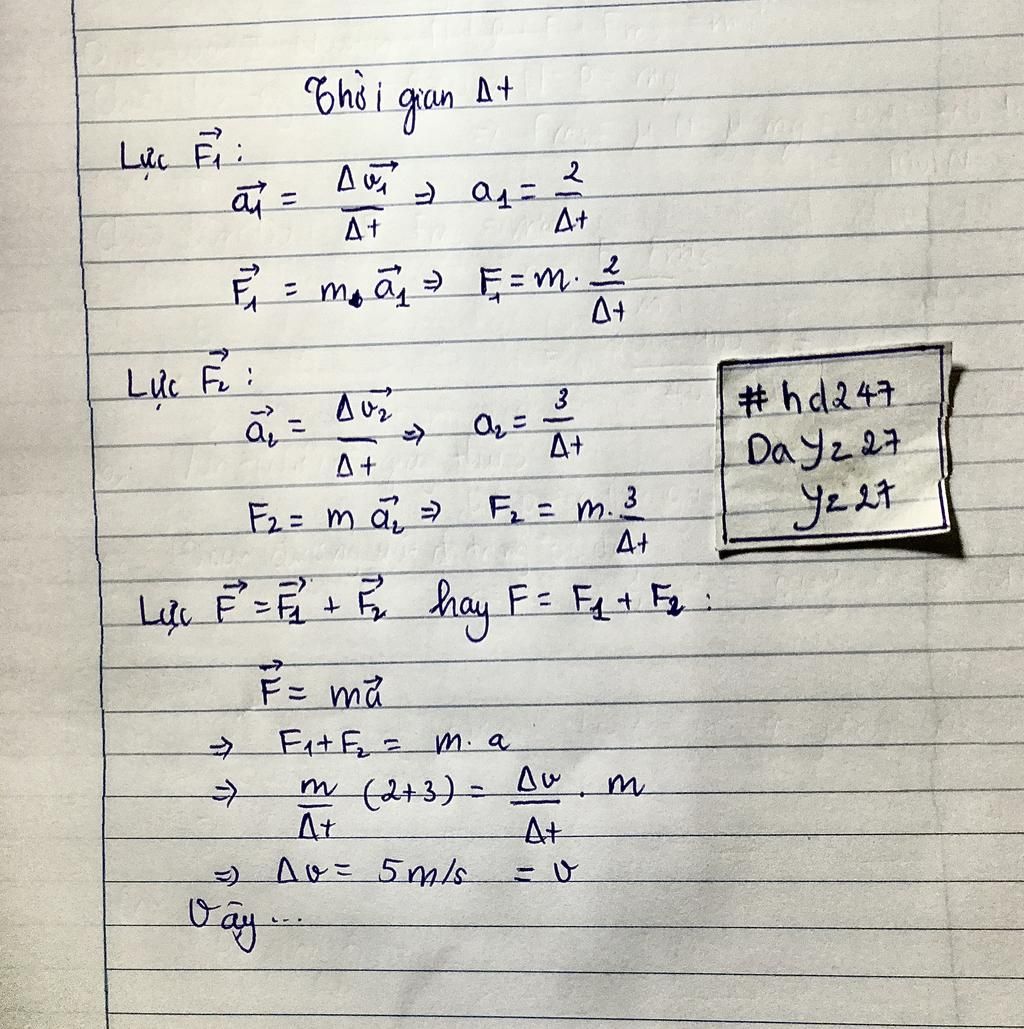 Thời gian Δt
Lực F₁⃗ :
a₁⃗ = Δv₁⃗/Δt ⇒ a₁ = 2/Δt
F₁⃗ = m. a₁⃗ ⇒ F₁ = m. 2/Δt
Lực F₂⃗ :
a₂⃗ = Δv₂⃗/Δt ⇒ a₂ = 3/Δt
F₂ = m a₂⃗ ⇒ F₂ = m. 3/Δt
#hd247
DaYz27
Yz27
Lực F⃗ = F₁⃗ + F₂⃗ hay F = F₁ + F₂ :
F⃗ = ma⃗
⇒ F₁+F₂ = m. a
⇒ m/Δt (2+3) = Δv/Δt . m
⇒ Δv = 5m/s = v
Vậy ...